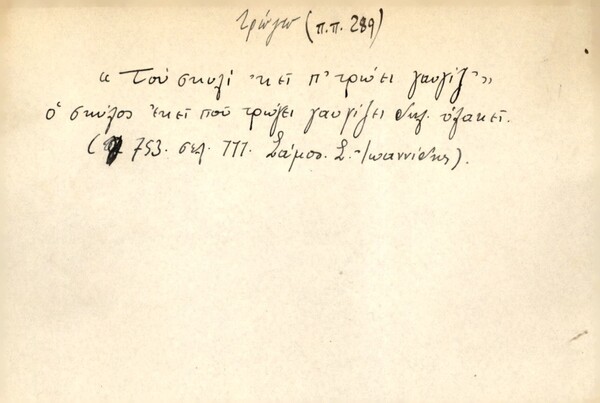 τρώγω (π.π. 289)
« Τοὺ σκυλὶ 'κεῖ π' τρώει γαυγίζ' »
ὁ σκύλος ἐκεῖ ποῦ τρώγει γαυγίζει δηλ. ὑλακτεῖ.
( 753. σελ. 111. Σάμος. Σ. Ἰωαννίδης).